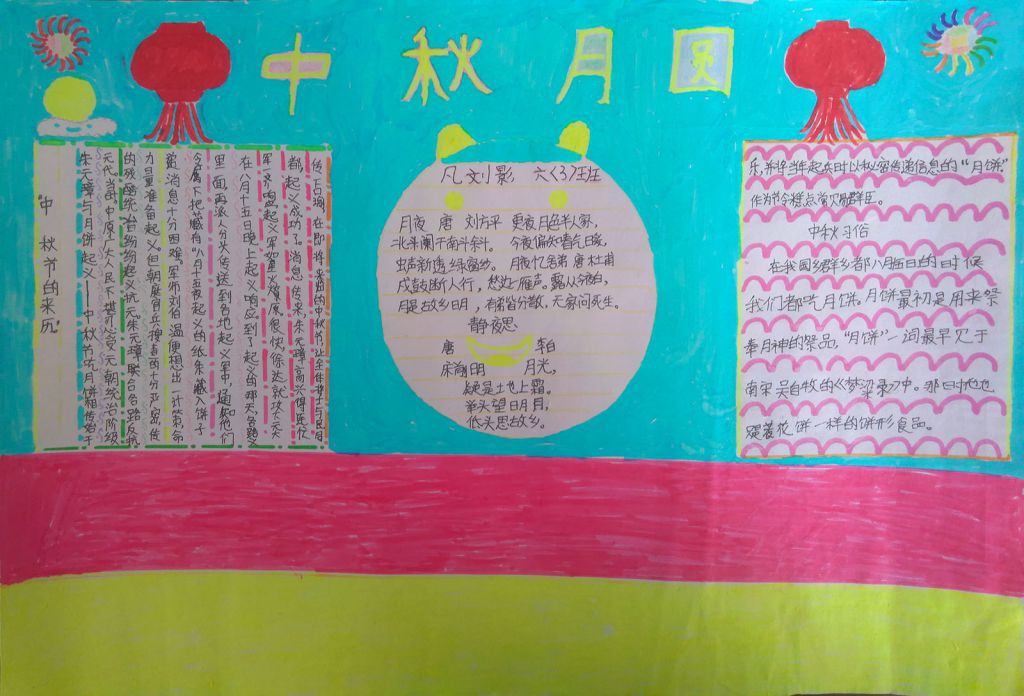 中秋月圆
"中秋节的来历"
朱元璋与月饼起义——中秋节吃月饼相传始于
元代。当时,中原广大人民不堪忍受元朝统治阶级
的残酷统治,纷纷起义抗元。朱元璋联合各路反抗
力量准备起义。但朝廷官兵搜查的十分严密,传
递消息十分困难。军师刘伯温便想出一计策,命
令属下把藏有"八月十五夜起义"的纸条藏入饼子
里面,再派人分头传送到各地起义军中,通知他们
在八月十五日晚上起义响应。到了起义的那天,各路义
军一齐响应,起义军如星火燎原。很快,徐达就攻下元大
都,起义成功了。消息传来,朱元璋高兴得连忙
传下口谕,在即将来临的中秋节,让全体将士与民同
凡刘影 六〈3〉班
月夜 唐 刘方平 更夜月色半人家,
北斗阑干南斗斜。 今夜偏知春气暖,
虫声新透绿窗纱。 月夜忆舍弟 唐 杜甫
戍鼓断人行, 边一雁声。露从今夜白,
月是故乡明, 有弟皆分散, 无家问死生。
静夜思
唐 李白
床前明 月光,
疑是土地上霜。
举头望日月,
低头思故乡。
乐,并将当年起兵时以秘密传递信息的"月饼"
作为节令糕点赏赐群臣。
中秋习俗
在我国乡群乡都八月届日的时候
我们都吃月饼。月饼最初是用来祭
奉月神的祭品,"月饼"一词最早见于
南宋吴自牧的《梦梁录》中。那时它也
踞着花饼一样的饼形食品。